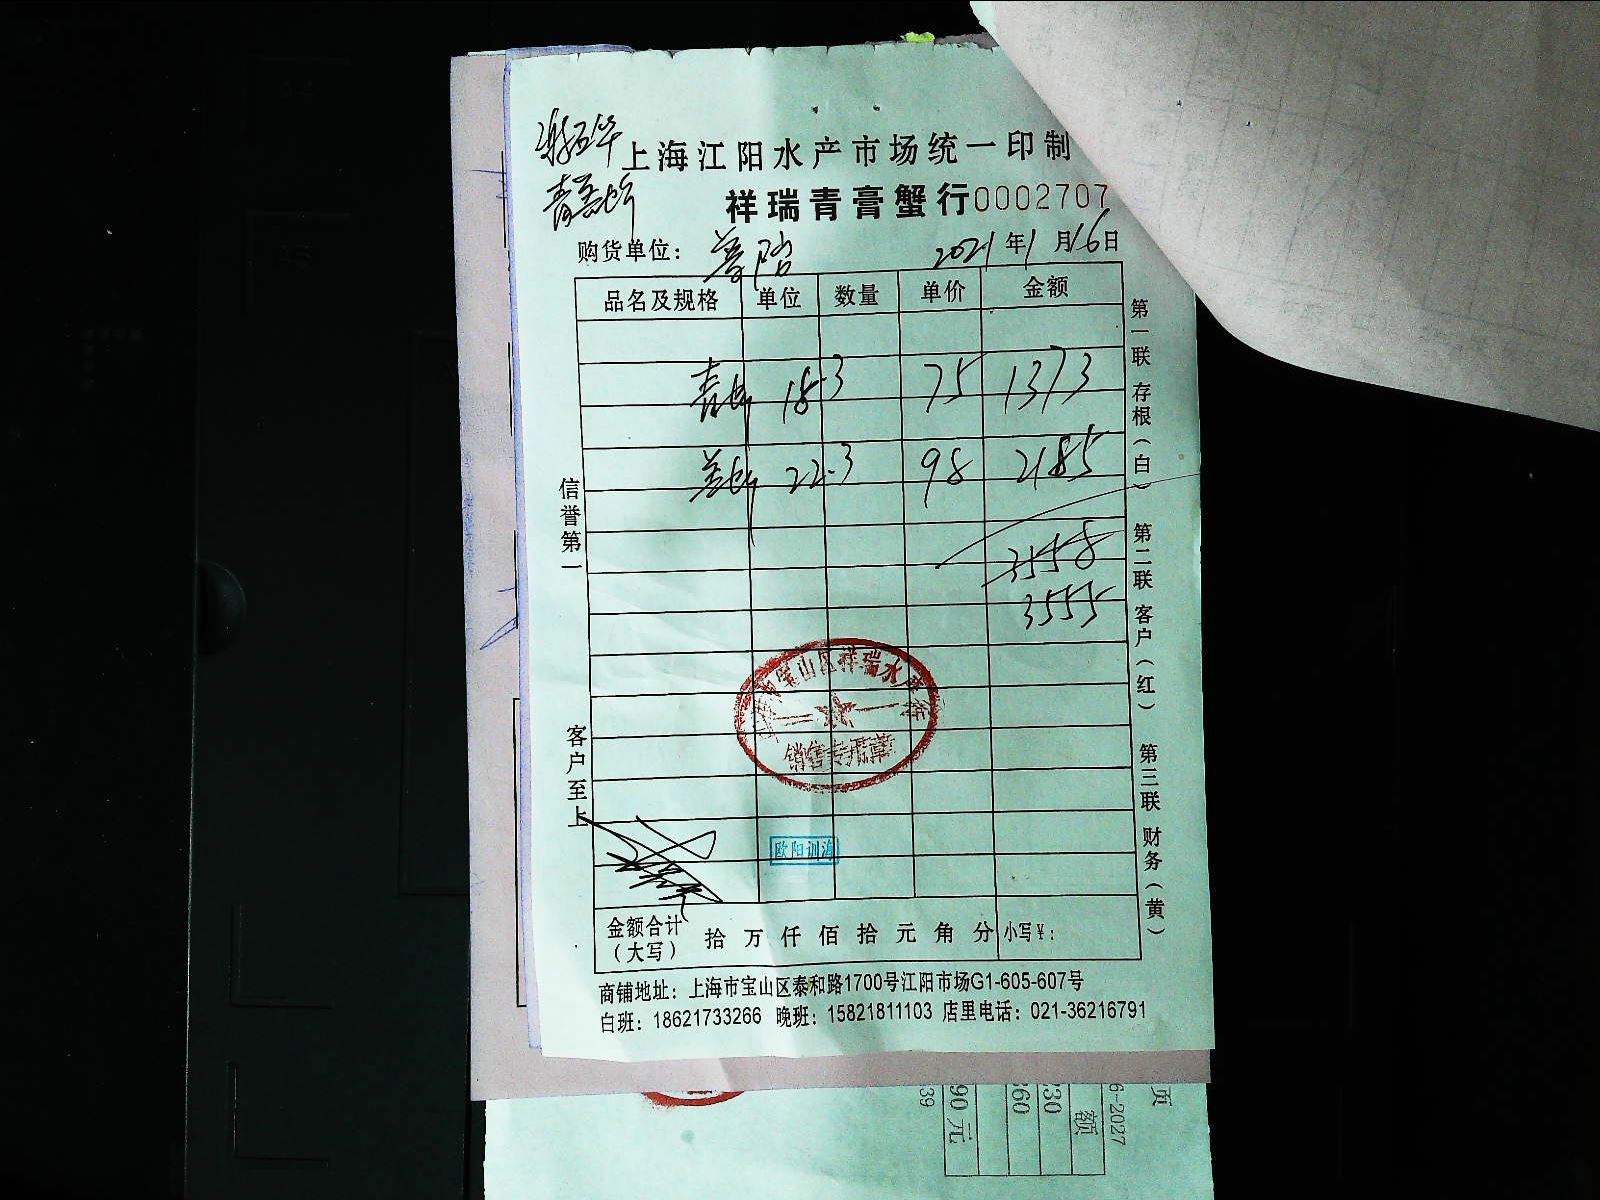 上海江阳水产市场统一印制
祥瑞青膏蟹行0002707
购货单位：
2021年1月16日
品名及规格 单位 数量 单价 金额
青 18.3 75 1373
22.3 98 2185
3558
3555
信誉第一
客户至上
第一联 存根（白） 第二联 客户（红） 第三联 财务（黄）
宝山区祥瑞水产行
销售专用章
欧阳训海
金额合计（大写） 拾 万 仟 佰 拾 元 角 分 小写¥：
商铺地址：上海市宝山区泰和路1700号江阳市场G1-605-607号
白班：18621733266 晚班：15821811103 店里电话：021-36216791
页
6-2027
额
230
360
90元
39